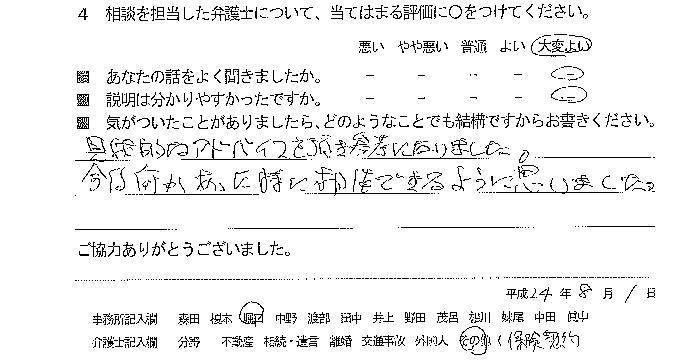 4 相談を担当した弁護士について、当てはまる評価に○をつけてください。
悪い やや悪い 普通 よい 大変よい
あなたの話をよく聞きましたか。 － － － － －
説明は分かりやすかったですか。 － － － － －
気がついたことがありましたら、どのようなことでも結構ですからお書きください。
具体的なアドバイスを頂き参考になりました。
今後何かあった時に相談できるように思いました。
ご協力ありがとうございました。
平成24年8月1日
事務所記入欄 森田 榎本 中野 渡部 田中 井上 野田 茂呂 旭川 妹尾 中田 眞中
弁護士記入欄 分野 不動産 相続・遺言 離婚 交通事故 外国人 その他(保険契約